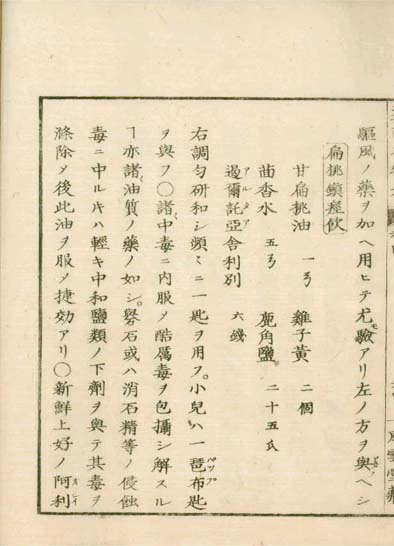 驅風ノ藥ヲ加ヘ用ヒテ尤モ驗アリ左ノ方ヲ與ヘシ
扁桃鎮痙飲
甘扁桃油 一ろ 雞子黃 二個
茴香水 五ろ 鹿角鹽 二十五氏
遏爾託亞舎利別 六錢
アルタア
右調勻研和シ頻ニ一匙ヲ用フ。小兒ハ一琶布匙
パップ
ヲ與フ〇諸中毒ニ内服メ酷厲毒ヲ包攝シ解スル
ヿ亦諸油質ノ藥ノ如シ。礜石或ハ消石精等ノ侵蝕
毒ニ中ルキハ輕キ中和鹽類ノ下劑ヲ與テ其毒ヲ
滌除メ後此油ヲ服メ捷効アリ〇新鮮上好ノ阿利
オレイ